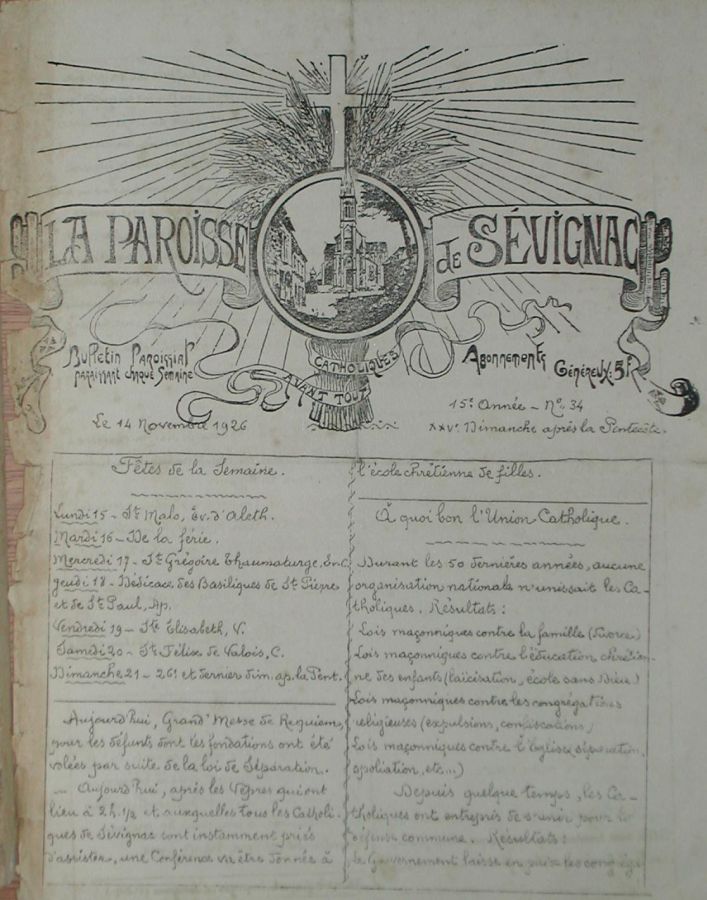 LA PAROISSE de SÉVIGNAC
Bulletin Paroissial
paraissant chaque Semaine
CATHOLIQUES
AVANT TOUT
Abonnements
Généreux: 5f.
15e Année - No. 34
Le 14 Novembre 1926
XXVe. Dimanche après la Pentecôte.
Fêtes de la Semaine.
Lundi 15 - St Malo, Ev. d'Aleth.
Mardi 16 - De la férie.
Mercredi 17 - St Grégoire Thaumaturge, Ev. C.
Jeudi 18 - Dédicace des Basiliques de St Pierre
et de St Paul, Ap.
Vendredi 19 - Ste Elisabeth, V.
Samedi 20 - St Félix de Valois, C.
Dimanche 21 - 26e et dernier dim. ap. la Pent.
Aujourd'hui, Grand'Messe de Requiem,
pour les défunts dont les fondations ont été
volées par suite de la loi de Séparation.
— Aujourd'hui, après les Vêpres qui ont
lieu à 2h.1/2 et auxquelles tous les Catholi-
ques de Sévignac sont instamment priés
d'assister, une Conférence va être donnée à
l'école chrétienne de filles.
À quoi bon l'Union Catholique.
Durant les 50 dernières années, aucune
organisation nationale n'unissait les Ca-
tholiques. Résultats:
Lois maçonniques contre la famille (divorce)
Lois maçonniques contre l'éducation chrétien-
ne des enfants (laïcisation, école sans Dieu)
Lois maçonniques contre les congrégations
religieuses (expulsions, confiscations)
Lois maçonniques contre l'Église séparation,
spoliation, etc...)
Depuis quelque temps, les Ca-
tholiques ont entrepris de s'unir pour la
défense commune. Résultats:
le Gouvernement laisse en paix les congréga